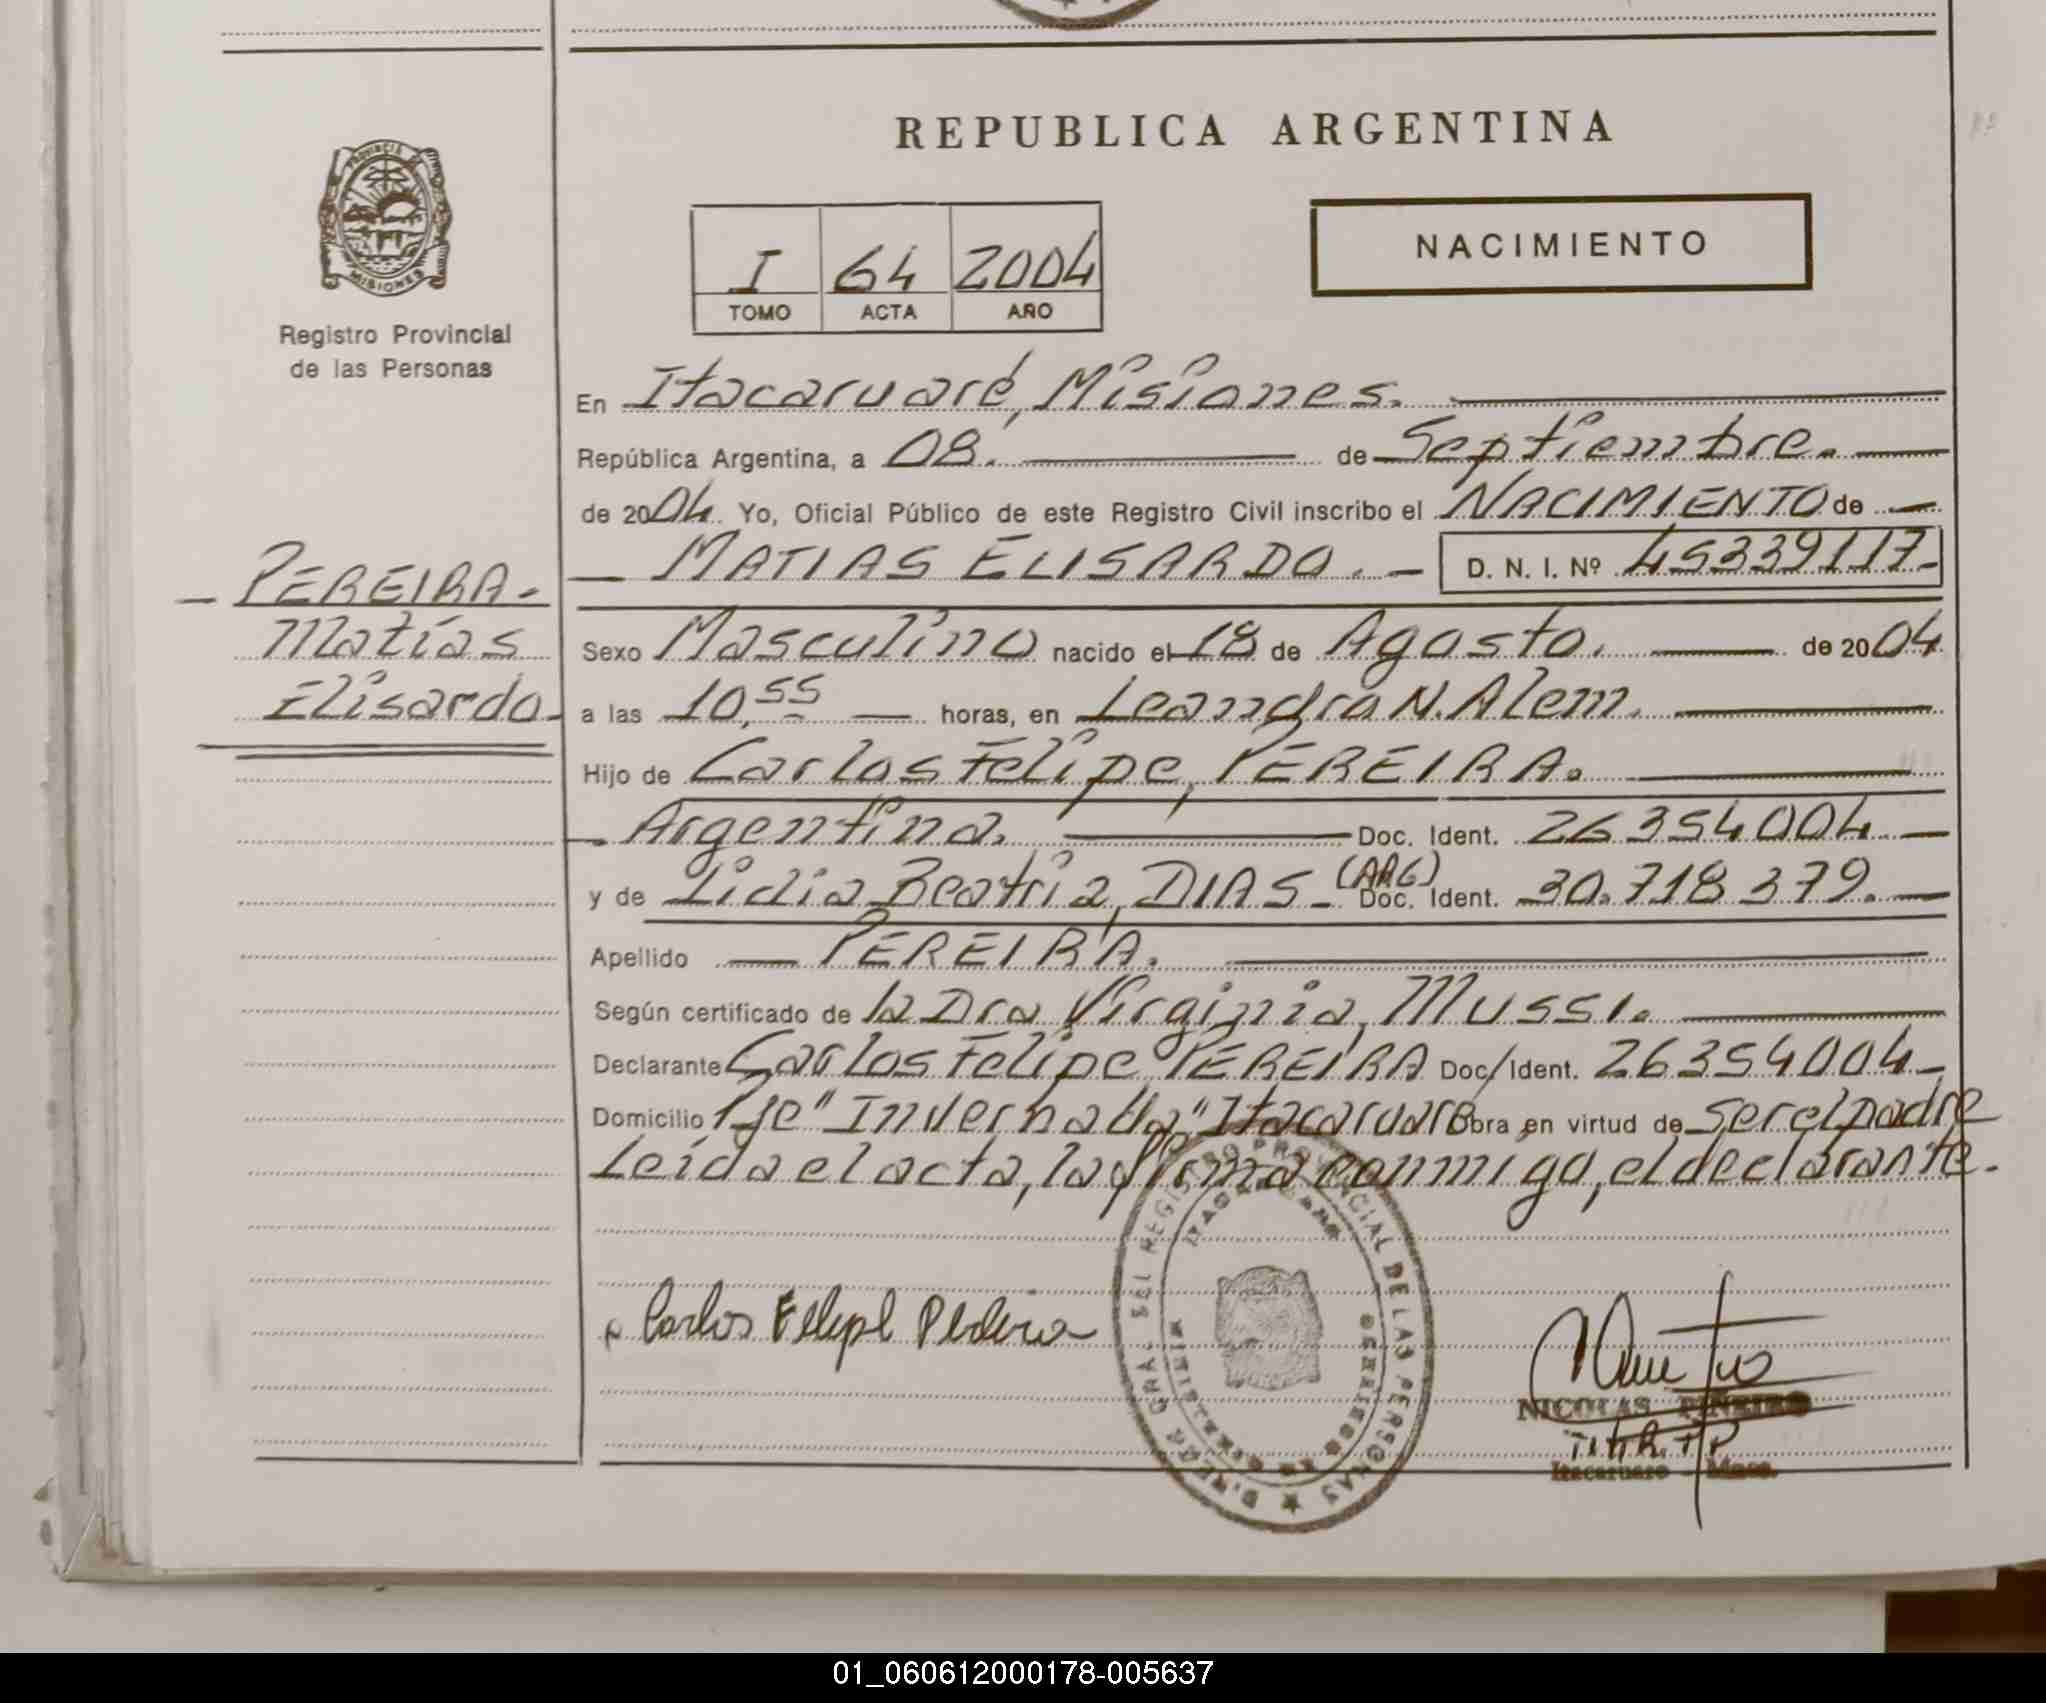 REPUBLICA ARGENTINA
PROVINCIA
MISIONES
Registro Provincial
de las Personas
NACIMIENTO
I 64 2004
TOMO ACTA AÑO
En Itacaruaré, Misiones.
República Argentina, a 08. de Septiembre.
de 2004. Yo, Oficial Público de este Registro Civil inscribo el NACIMIENTO de
MATIAS ELISARDO. D. N. I. Nº 45339117
PEREIRA
Matías
Elisardo
Sexo Masculino nacido el 18 de Agosto. de 2004
a las 10,55 horas, en Leandro N. Alem.
Hijo de Carlos Felipe, PEREIRA.
Argentina. Doc. Ident. 26354004
y de Lidia Beatriz, DIAS (ARG) Doc. Ident. 30.718379.
Apellido PEREIRA.
Según certificado de la Dra Virginia, Mussi.
Declarante Carlos Felipe PEREIRA Doc/Ident. 26354004
Domicilio Pje "Invernada" Itacaruaré Obra en virtud de ser el padre
Leída el acta, la firma conmigo, el declarante.
REGISTRO PROVINCIAL DE LAS PERSONAS
Carlos Felipe Pereira
NICOLAS PIÑEIRO
Itacaruaré - Mnes.
01_060612000178-005637